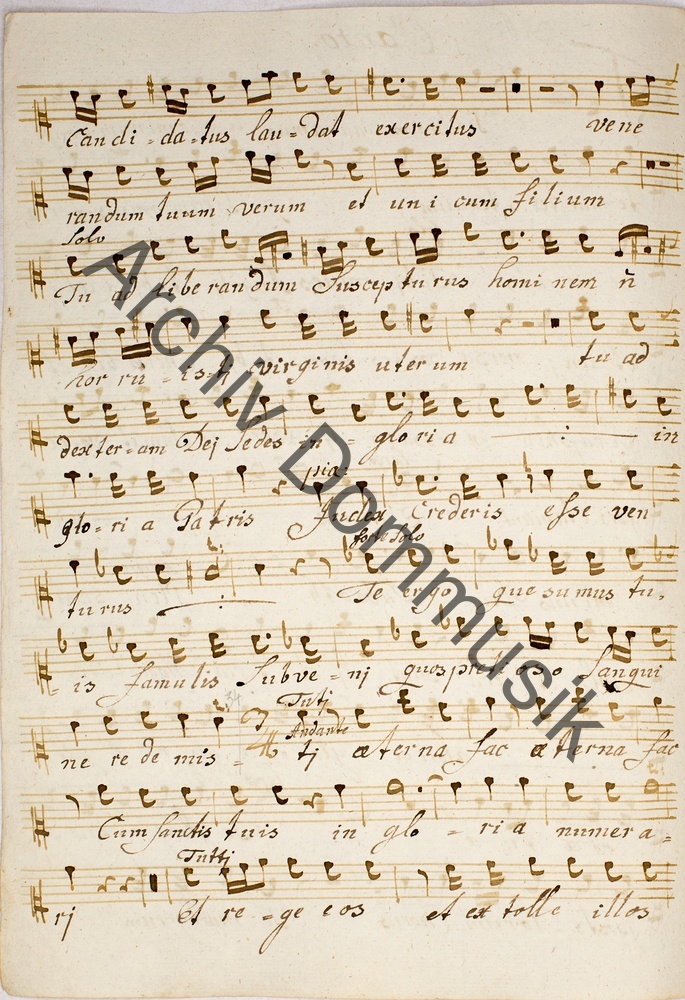 Candi - da - tus lau - dat exercitus vene
randum tuum verum et uni cum filium
Solo
Tu ad liberandum Suscepturus homi nem ñ
hor ru - is - ti virginis uterum tu ad
dexter - am Dej Sedes in - gloria in
pia:
glo - ri a Patris Judex Crederis esse ven
forte Solo
turus Te ergo quesumus tu,
is famulis Subve - nj quos pretioso Sangui
Tutj
Andante
ne re de mis - tj æterna fac æterna fac
Cum Sanctis tuis in glo - ria numera -
Tuttj
rj Et re - ge eos et extolle illos
Archiv Dommusik